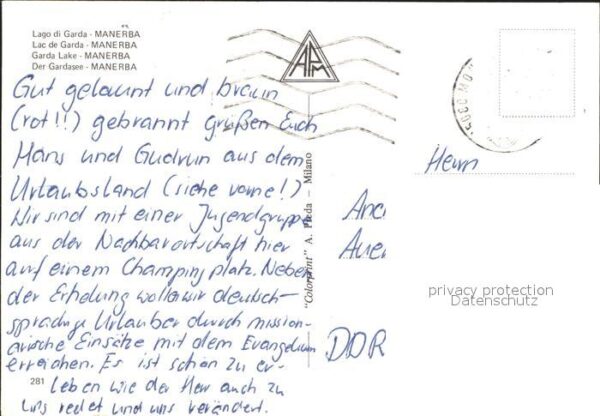 Lago di Garda - MANERBA
Lac de Garda - MANERBA
Garda Lake - MANERBA
Der Gardasee - MANERBA
APM
Gut gelaunt und braun
(rot!!) gebrannt grüßen Euch
Hans und Gudrun aus dem
Urlaubsland (siehe vorne!)
Wir sind mit einer Jugendgruppe
aus der Nachbarortschaft hier
auf einem Champingplatz. Neben
der Erholung wollen wir deutsch-
sprachige Urlauber durch mission-
arische Einsätze mit dem Evangelium
erreichen. Es ist schön zu er-
leben wie der Herr auch zu
uns redet und uns verändert.
281
"Colorprint" A. - Milano
Herrn
DDR
privacy protection
Datenschutz